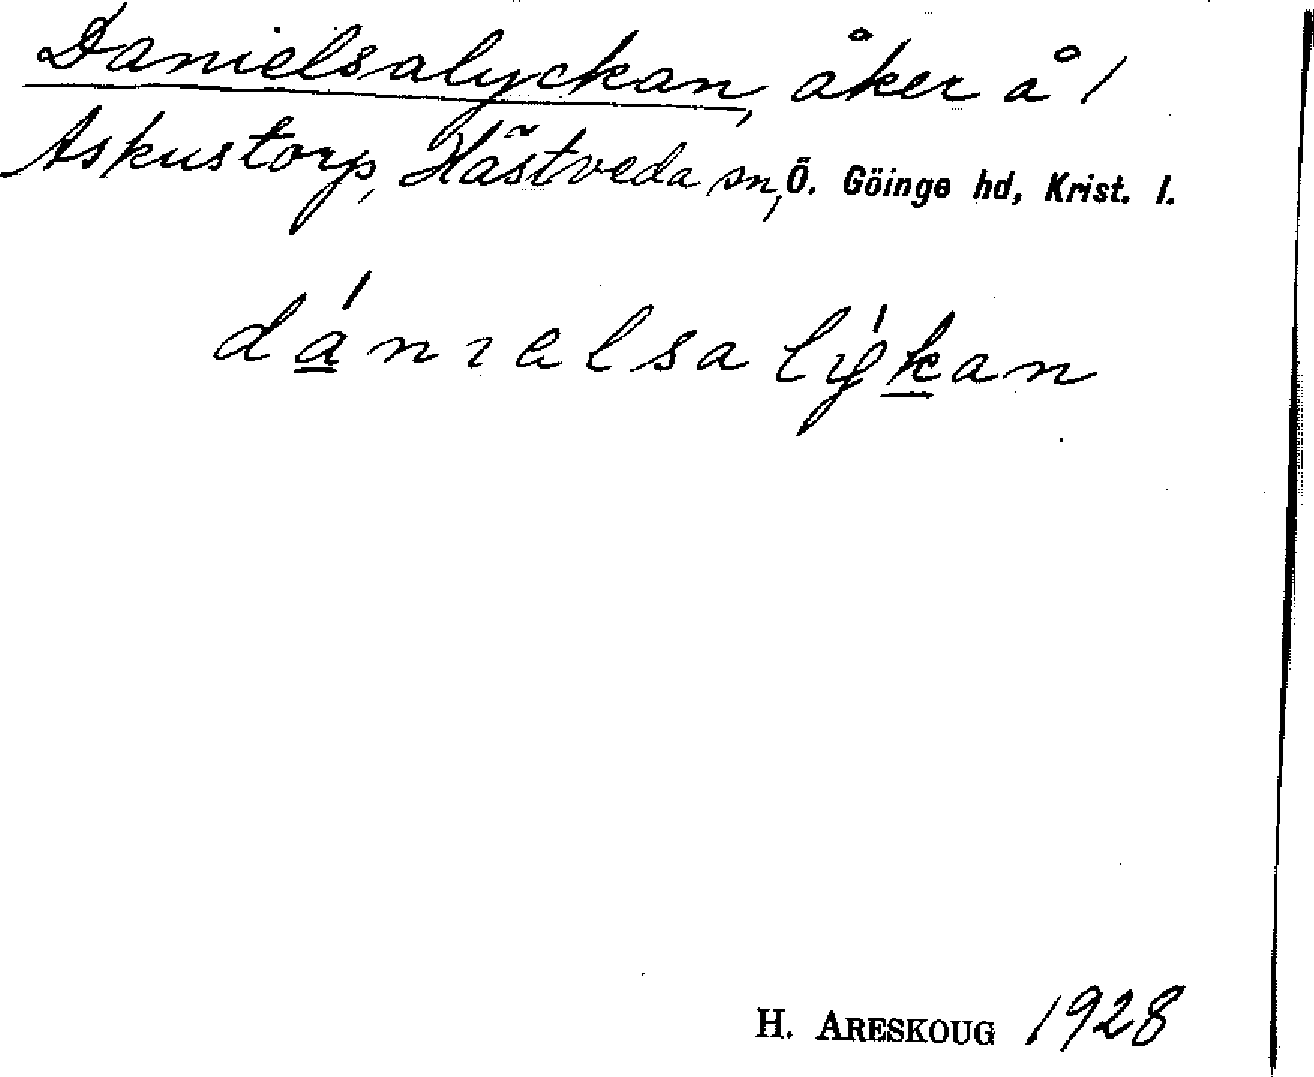 Danielsalyckan, åker å 1
Askustorp, Hästveda sn, Ö. Göinge hd, Krist. l.
dánıelsa lýkan
H. ARESKOUG 1928